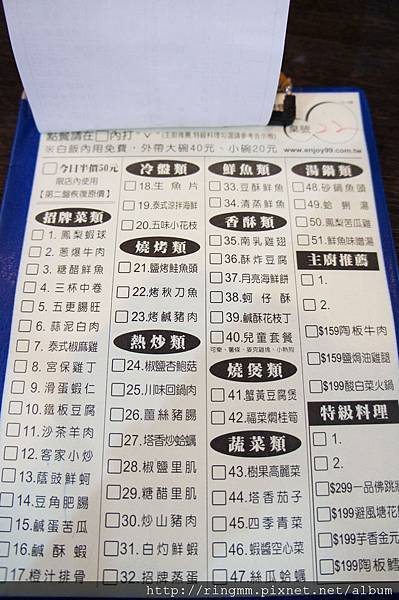 點餐請在□內打"ˇ"
桌號
22
※白飯內用免費，外帶大碗40元、小碗20元
www.enjoy99.com.tw
□今日半價50元
限店內使用
【第二盤恢復原價】
招牌菜類
1. 鳳梨蝦球
2. 蔥爆牛肉
3. 糖醋鮮魚
4. 三杯中卷
5. 五更腸旺
6. 蒜泥白肉
7. 泰式椒麻雞
8. 宮保雞丁
9. 滑蛋蝦仁
10. 鐵板豆腐
11. 沙茶羊肉
12. 客家小炒
13. 蔭豉鮮蚵
14. 豆角肥腸
15. 鹹蛋苦瓜
16. 鹹酥蝦
17. 橙汁排骨
冷盤類
18. 生魚片
19. 泰式涼拌海鮮
20. 五味小花枝
燒烤類
21. 鹽烤鮭魚頭
22. 烤秋刀魚
23. 烤鹹豬肉
熱炒類
24. 椒鹽杏鮑菇
25. 川味回鍋肉
26. 薑絲豬腸
27. 塔香炒蛤蠣
28. 椒鹽里肌
29. 糖醋里肌
30. 炒山豬肉
31. 白灼鮮蝦
32. 招牌蒸蛋
鮮魚類
33. 豆酥鮮魚
34. 清蒸鮮魚
香酥類
35. 南乳雞翅
36. 酥炸豆腐
37. 月亮海鮮餅
38. 蚵仔酥
39. 鹹酥花枝丁
40. 兒童套餐
可樂、薯條、麥克雞塊、小熱狗
燒煲類
41. 蟹黃豆腐煲
42. 福菜燜桂筍
蔬菜類
43. 樹果高麗菜
44. 塔香茄子
45. 四季青菜
46. 蝦醬空心菜
47. 絲瓜蛤蠣
湯鍋類
48. 砂鍋魚頭
49. 蛤蜊湯
50. 鳳梨苦瓜雞
51. 鮮魚味噌湯
主廚推薦
1.
2.
$159陶板牛肉
$159鹽焗油雞腿
$199酸白菜火鍋
特級料理
1.
2.
$299一品佛跳
$199避風塘花
$199芋香金元
$199陶板鱈
http://ringmm.pixnet.net/album